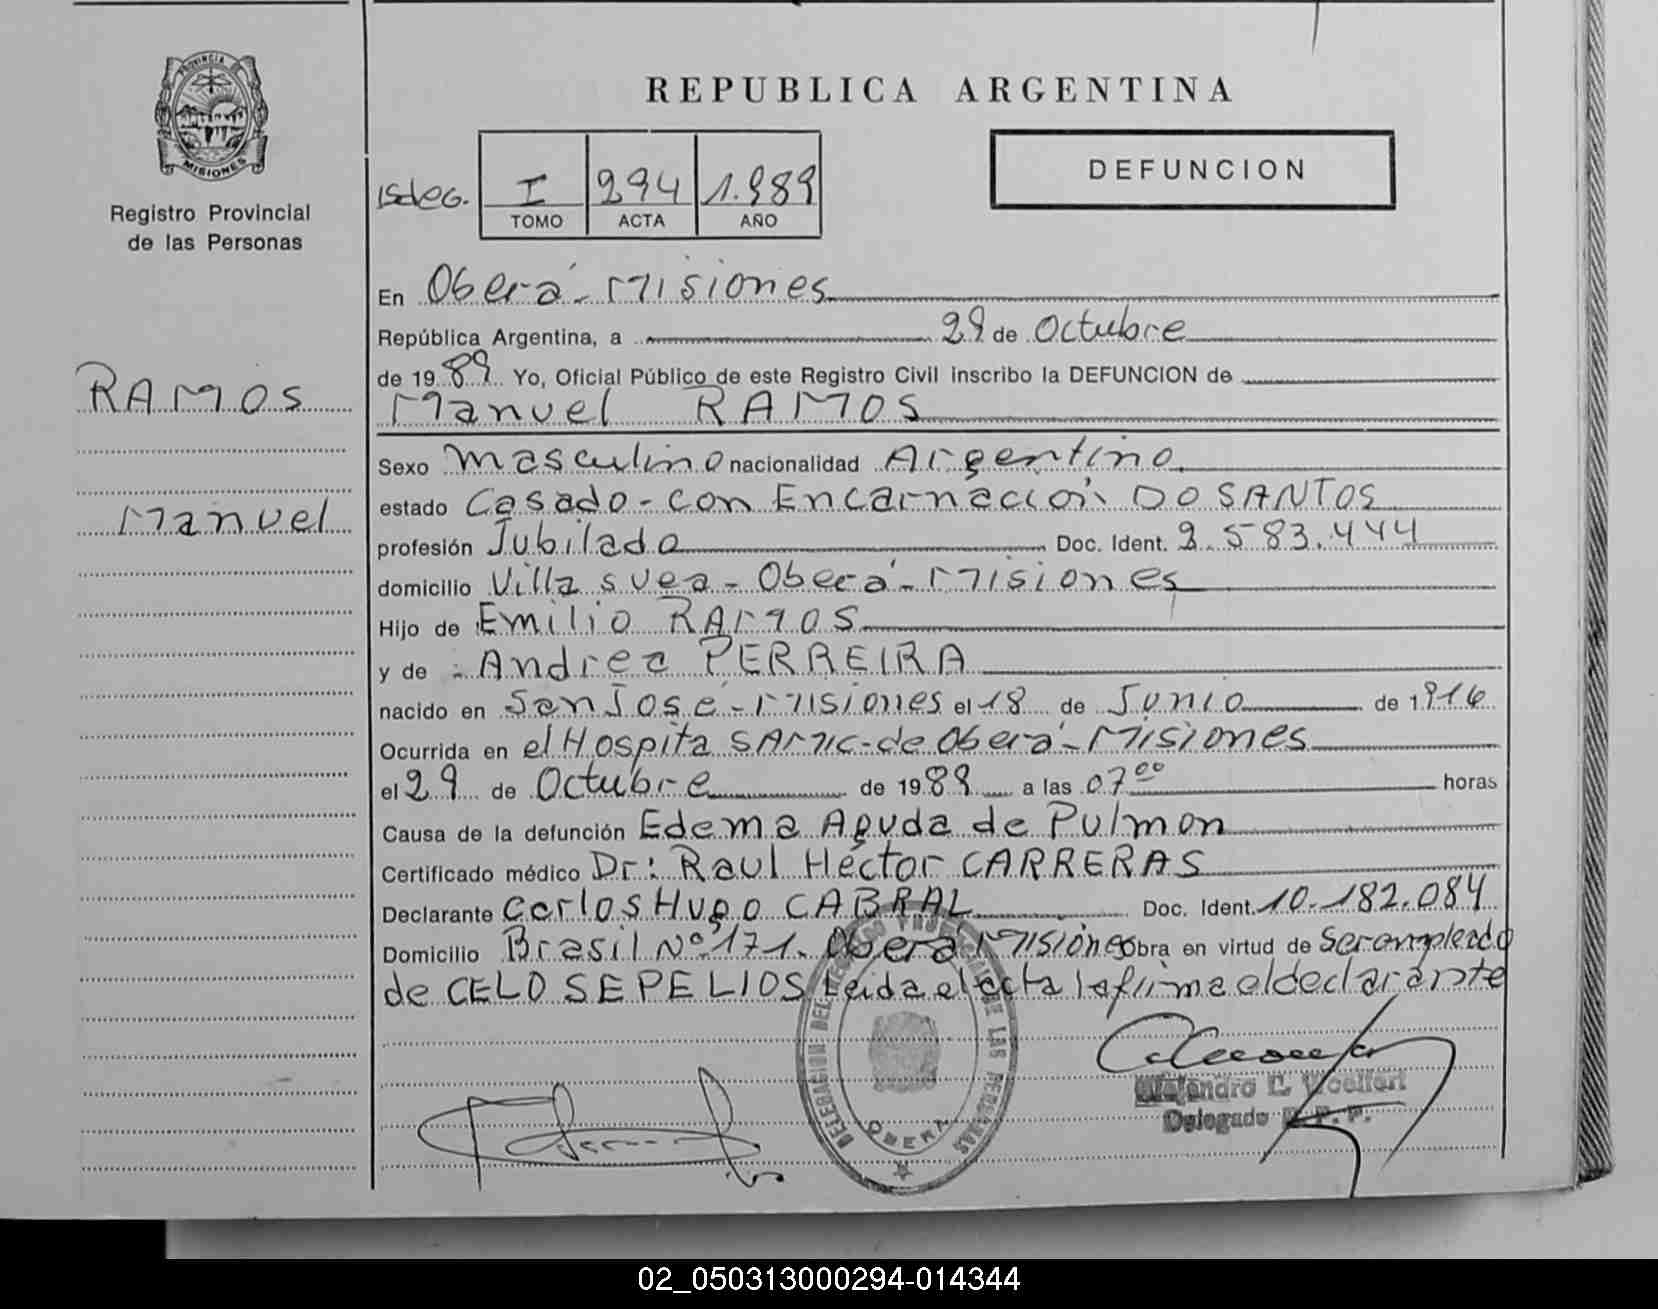 PROVINCIA
MISIONES
Registro Provincial
de las Personas
RAMOS
Manuel
REPUBLICA ARGENTINA
DEFUNCION
I 294 1.989
TOMO ACTA AÑO
En Oberá - Misiones
República Argentina, a 29 de Octubre
de 1989 Yo, Oficial Público de este Registro Civil inscribo la DEFUNCION de
Manuel RAMOS
Sexo masculino nacionalidad Argentino
estado Casado - con Encarnación DO SANTOS
profesión Jubilado Doc. Ident. 2.583.444
domicilio Villa svea - Oberá - Misiones
Hijo de Emilio RAMOS
y de Andrea PERREIRA
nacido en San José - Misiones el 18 de Junio de 1916
Ocurrida en el Hospita SAMIC - de Oberá - Misiones
el 29 de Octubre de 1989 a las 07 00 horas
Causa de la defunción Edema Aguda de Pulmon
Certificado médico Dr: Raul Héctor CARRERAS
Declarante Carlos Hugo CABRAL Doc. Ident. 10.182.084
Domicilio Brasil Nº 171. Oberá Misiones obra en virtud de Ser empleado
de CELO SEPELIOS Leida el acta la firma el declarante
DELEGACION DEL REGISTRO PROVINCIAL DE LAS PERSONAS
OBERA
Alejandro E. Woelfert
Delegado R. P. P.
02_050313000294-014344